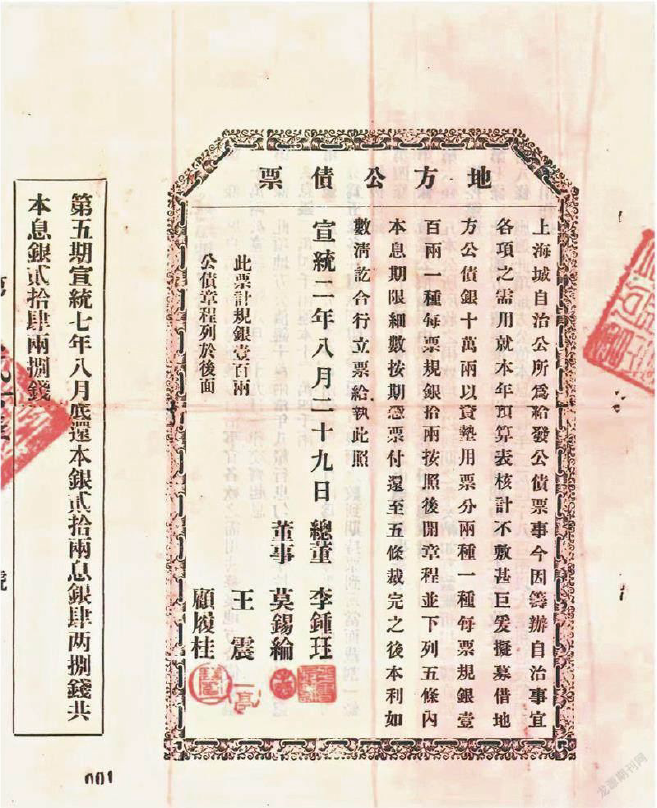 地方公債票
上海城自治公所爲給發公債票事今因籌辦自治事宜
各項之需用就本年預算表核計不敷甚巨爰擬募借地
方公債銀十萬兩以資墊用票分兩種一種每票規銀壹
百兩一種每票規銀拾兩按照後開章程並下列五條內
本息期限細數按期憑票付還至五條裁完之後本利如
數清訖合行立票給執此照
宣統二年八月二十九日 總董 李鍾珏
董事 莫錫綸
王震
顧履桂
此票計規銀壹百兩
公債章程列於後面
第五期宣統七年八月底還本銀貳拾兩息銀肆两捌錢共
本息銀貳拾肆兩捌錢
001
龙源期刊网